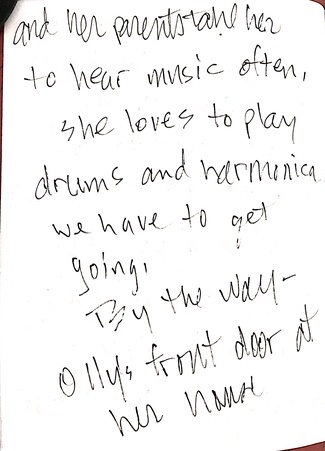 and her parents take her
to hear music often,
she loves to play
drums and harmonica
we have to get
going.
By the way-
Ollys front door at
her house